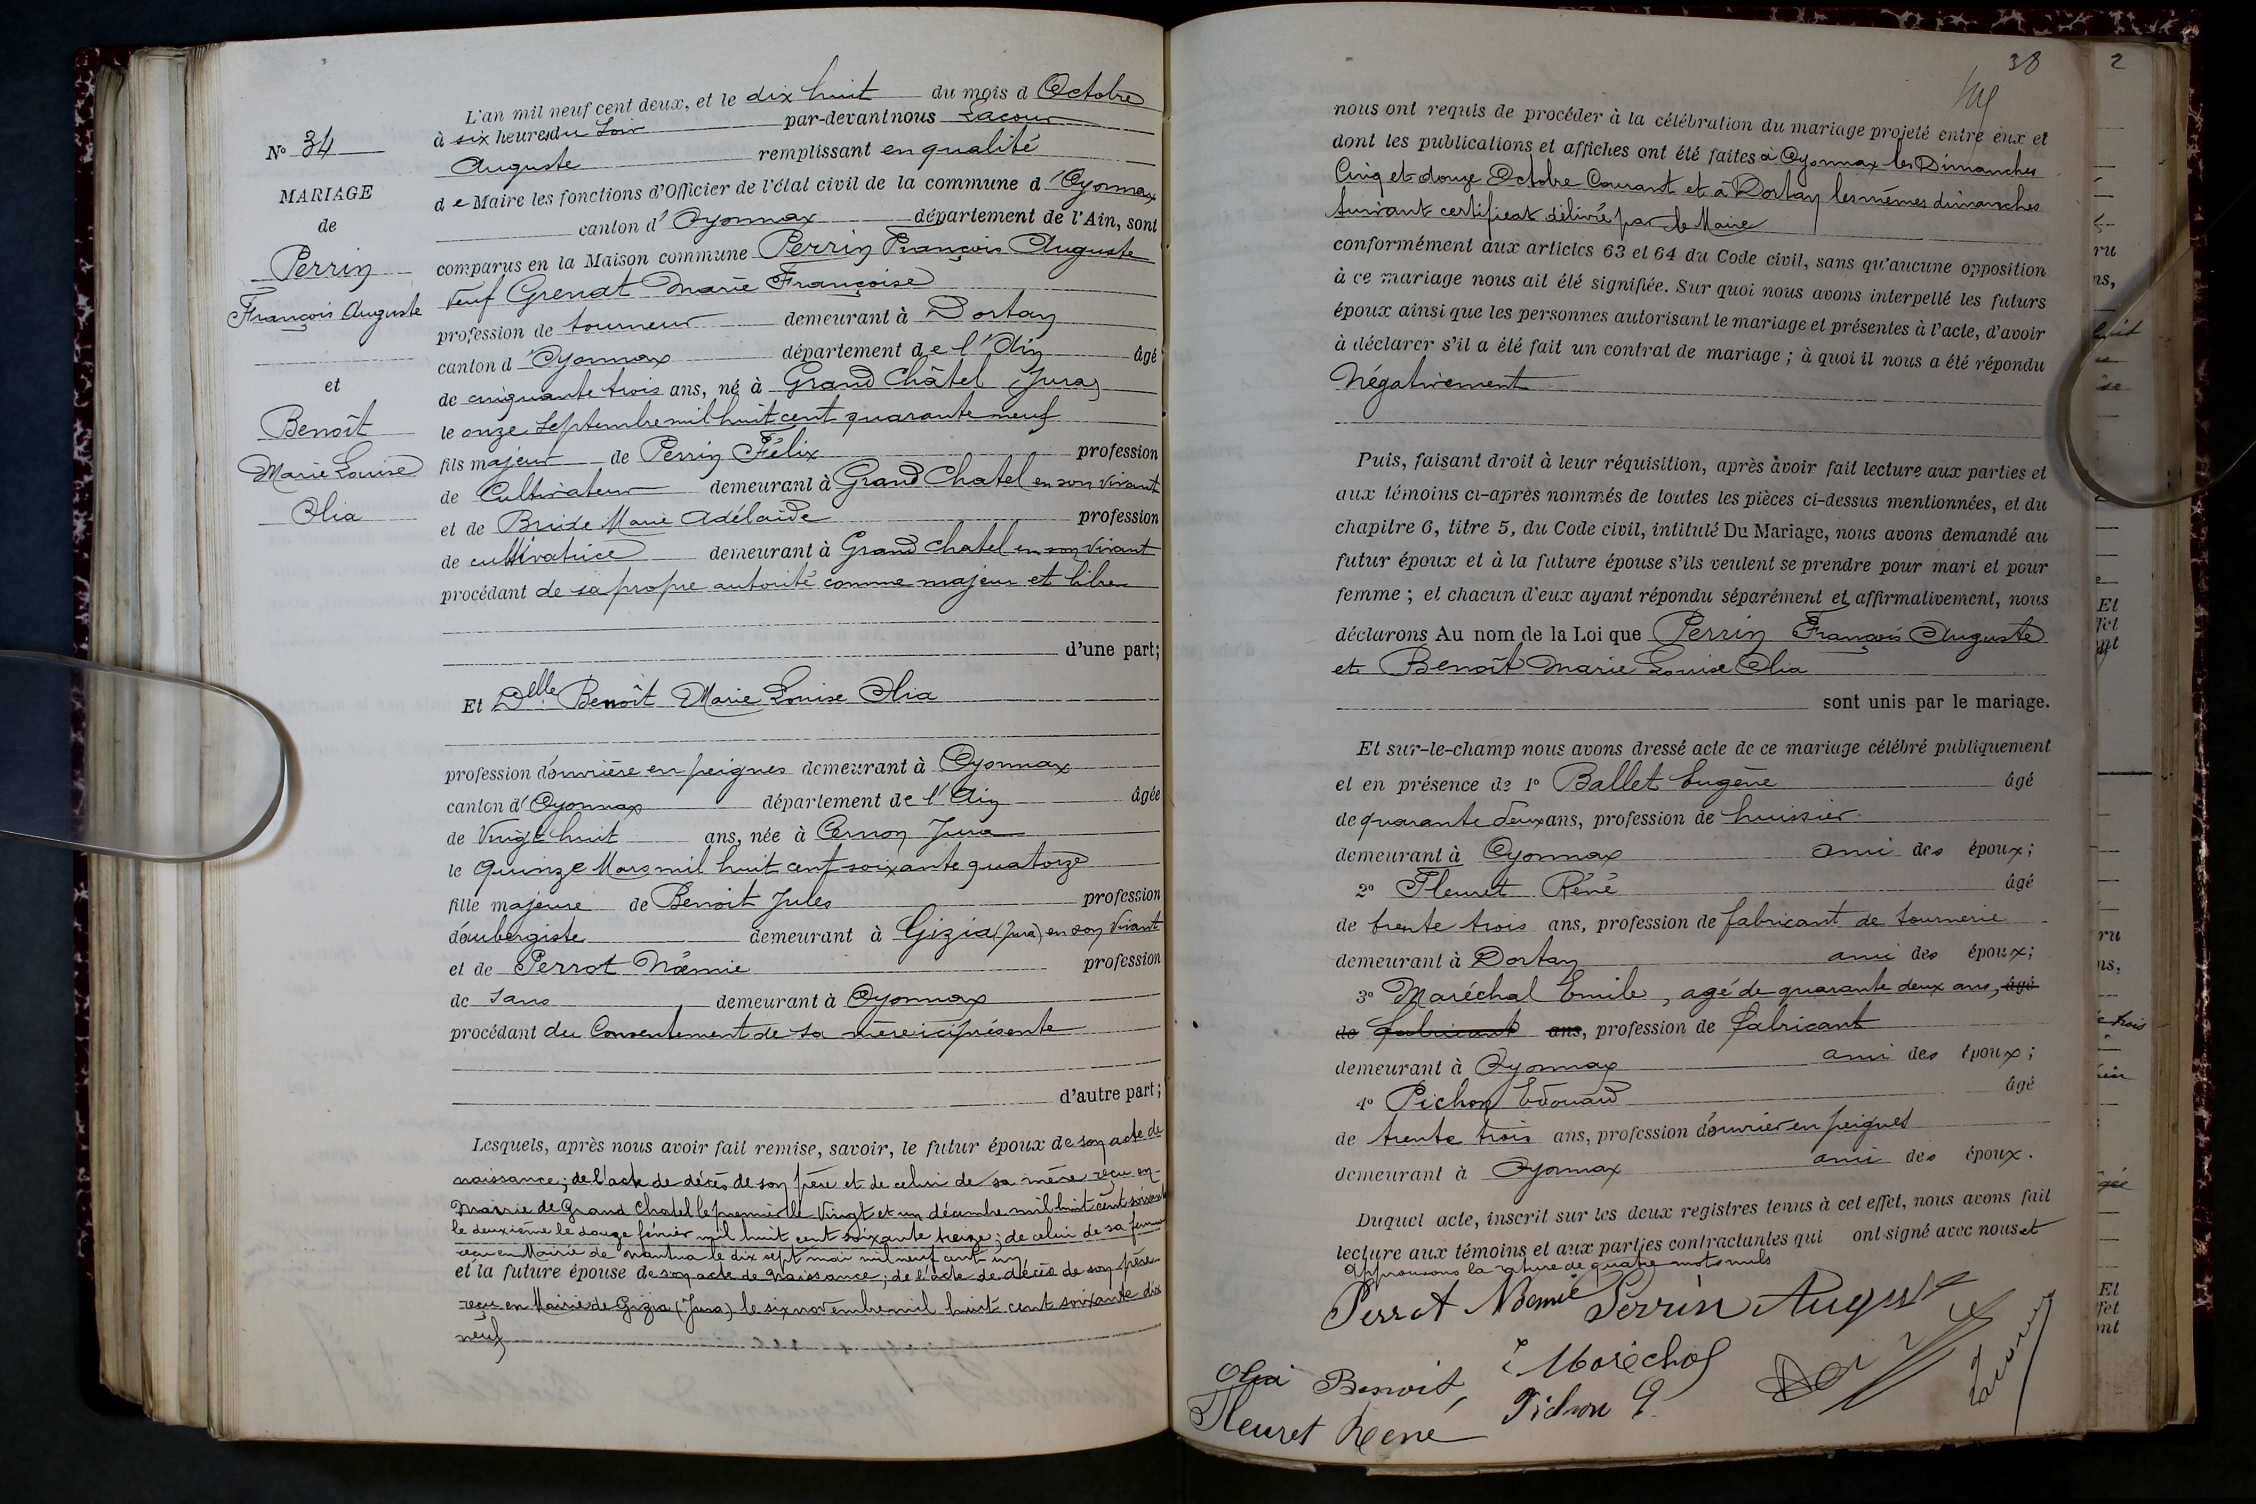 N° 34
MARIAGE
de
Perrin
François Auguste
et
Benoît
Marie Louise
Olia
L'an mil neuf cent deux, et le dix huit du mois d Octobre
à six heures du Soir par-devant nous Lacour
Auguste remplissant en qualité
de Maire les fonctions d'Officier de l'état civil de la commune d'Oyonnax
canton d'Oyonnax département de l'Ain, sont
comparus en la Maison commune Perrin François Auguste
Veuf Grenat Marie Françoise
profession de tourneur demeurant à Dortan
canton d'Oyonnax département de l'Ain âgé
de cinquante trois ans, né à Grand Châtel (Jura)
le onze Septembre mil huit cent quarante neuf
fils majeur de Perrin Félix profession
de Cultivateur demeurant à Grand Chatel en son vivant
et de Marie Adélaïde profession
de cultivatrice demeurant à Grand Chatel en son vivant
procédant de sa propre autorité comme majeur et libre
d'une part;
Et Delle Benoît Marie Louise Olia
profession d'ouvrière en peignes demeurant à Oyonnax
canton d'Oyonnax département de l'Ain âgée
de Vingt huit ans, née à Cernon Jura
le quinze Mars mil huit cent soixante quatorze
fille majeure de Benoit Jules profession
d'aubergiste demeurant à Gizia (Jura) en son vivant
et de Perrot Noémie profession
de sans demeurant à Oyonnax
procédant du Consentement de sa mère ici présente
d'autre part;
Lesquels, après nous avoir fait remise, savoir, le futur époux de son acte de
naissance; de l'acte de décès de son père et de celui de sa mère reçu en
Mairie de Grand Chatel le premier le Vingt et un décembre mil huit cent soixante
le deuxième le douze février mil huit cent soixante treize; de celui de sa femme
reçu en Mairie de Nantua le dix sept mai mil neuf cent un
et la future épouse de son acte de naissance; de l'acte de décès de son père
reçu en Mairie de Gizia (Jura) le six novembre mil huit cent soixante dix
neuf
38
nous ont requis de procéder à la célébration du mariage projeté entre eux et
dont les publications et affiches ont été faites à Oyonnax les Dimanches
Cinq et douze Octobre Courant et à Dortan les mêmes dimanches
suivant certificat délivré par le Maire
conformément aux articles 63 et 64 du Code civil, sans qu'aucune opposition
à ce mariage nous ait été signifiée. Sur quoi nous avons interpellé les futurs
époux ainsi que les personnes autorisant le mariage et présentes à l'acte, d'avoir
à déclarer s'il a été fait un contrat de mariage ; à quoi il nous a été répondu
Négativement
Puis, faisant droit à leur réquisition, après avoir fait lecture aux parties et
aux témoins ci-après nommés de toutes les pièces ci-dessus mentionnées, et du
chapitre 6, titre 5, du Code civil, intitulé Du Mariage, nous avons demandé au
futur époux et à la future épouse s'ils veulent se prendre pour mari et pour
femme ; et chacun d'eux ayant répondu séparément et affirmativement, nous
déclarons Au nom de la Loi que Perrin François Auguste
et Benoît Marie Louise Olia
sont unis par le mariage.
Et sur-le-champ nous avons dressé acte de ce mariage célébré publiquement
et en présence de 1° Ballet Eugène âgé
de quarante deux ans, profession de huissier
demeurant à Oyonnax ami des époux;
2° Fleuret Réné âgé
de trente trois ans, profession de fabricant de tournerie
demeurant à Dortan ami des époux;
3° Maréchal Emile, agé de quarante deux ans, âgé
de fabricant ans, profession de fabricant
demeurant à Oyonnax ami des époux;
4° Pichon Edouard âgé
de trente trois ans, profession d'ouvrier en peignes
demeurant à Oyonnax ami des époux.
Duquel acte, inscrit sur les deux registres tenus à cet effet, nous avons fait
lecture aux témoins et aux parties contractantes qui ont signé avec nous et
approuvons la rature de quatre mots nuls
Perrot Noemie Perrin Auguste
Olia Benoit E Maréchal
Fleuret René Pichon E